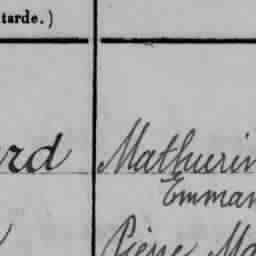 tarde.)
rd Mathurin
Emman
Pierre Ma